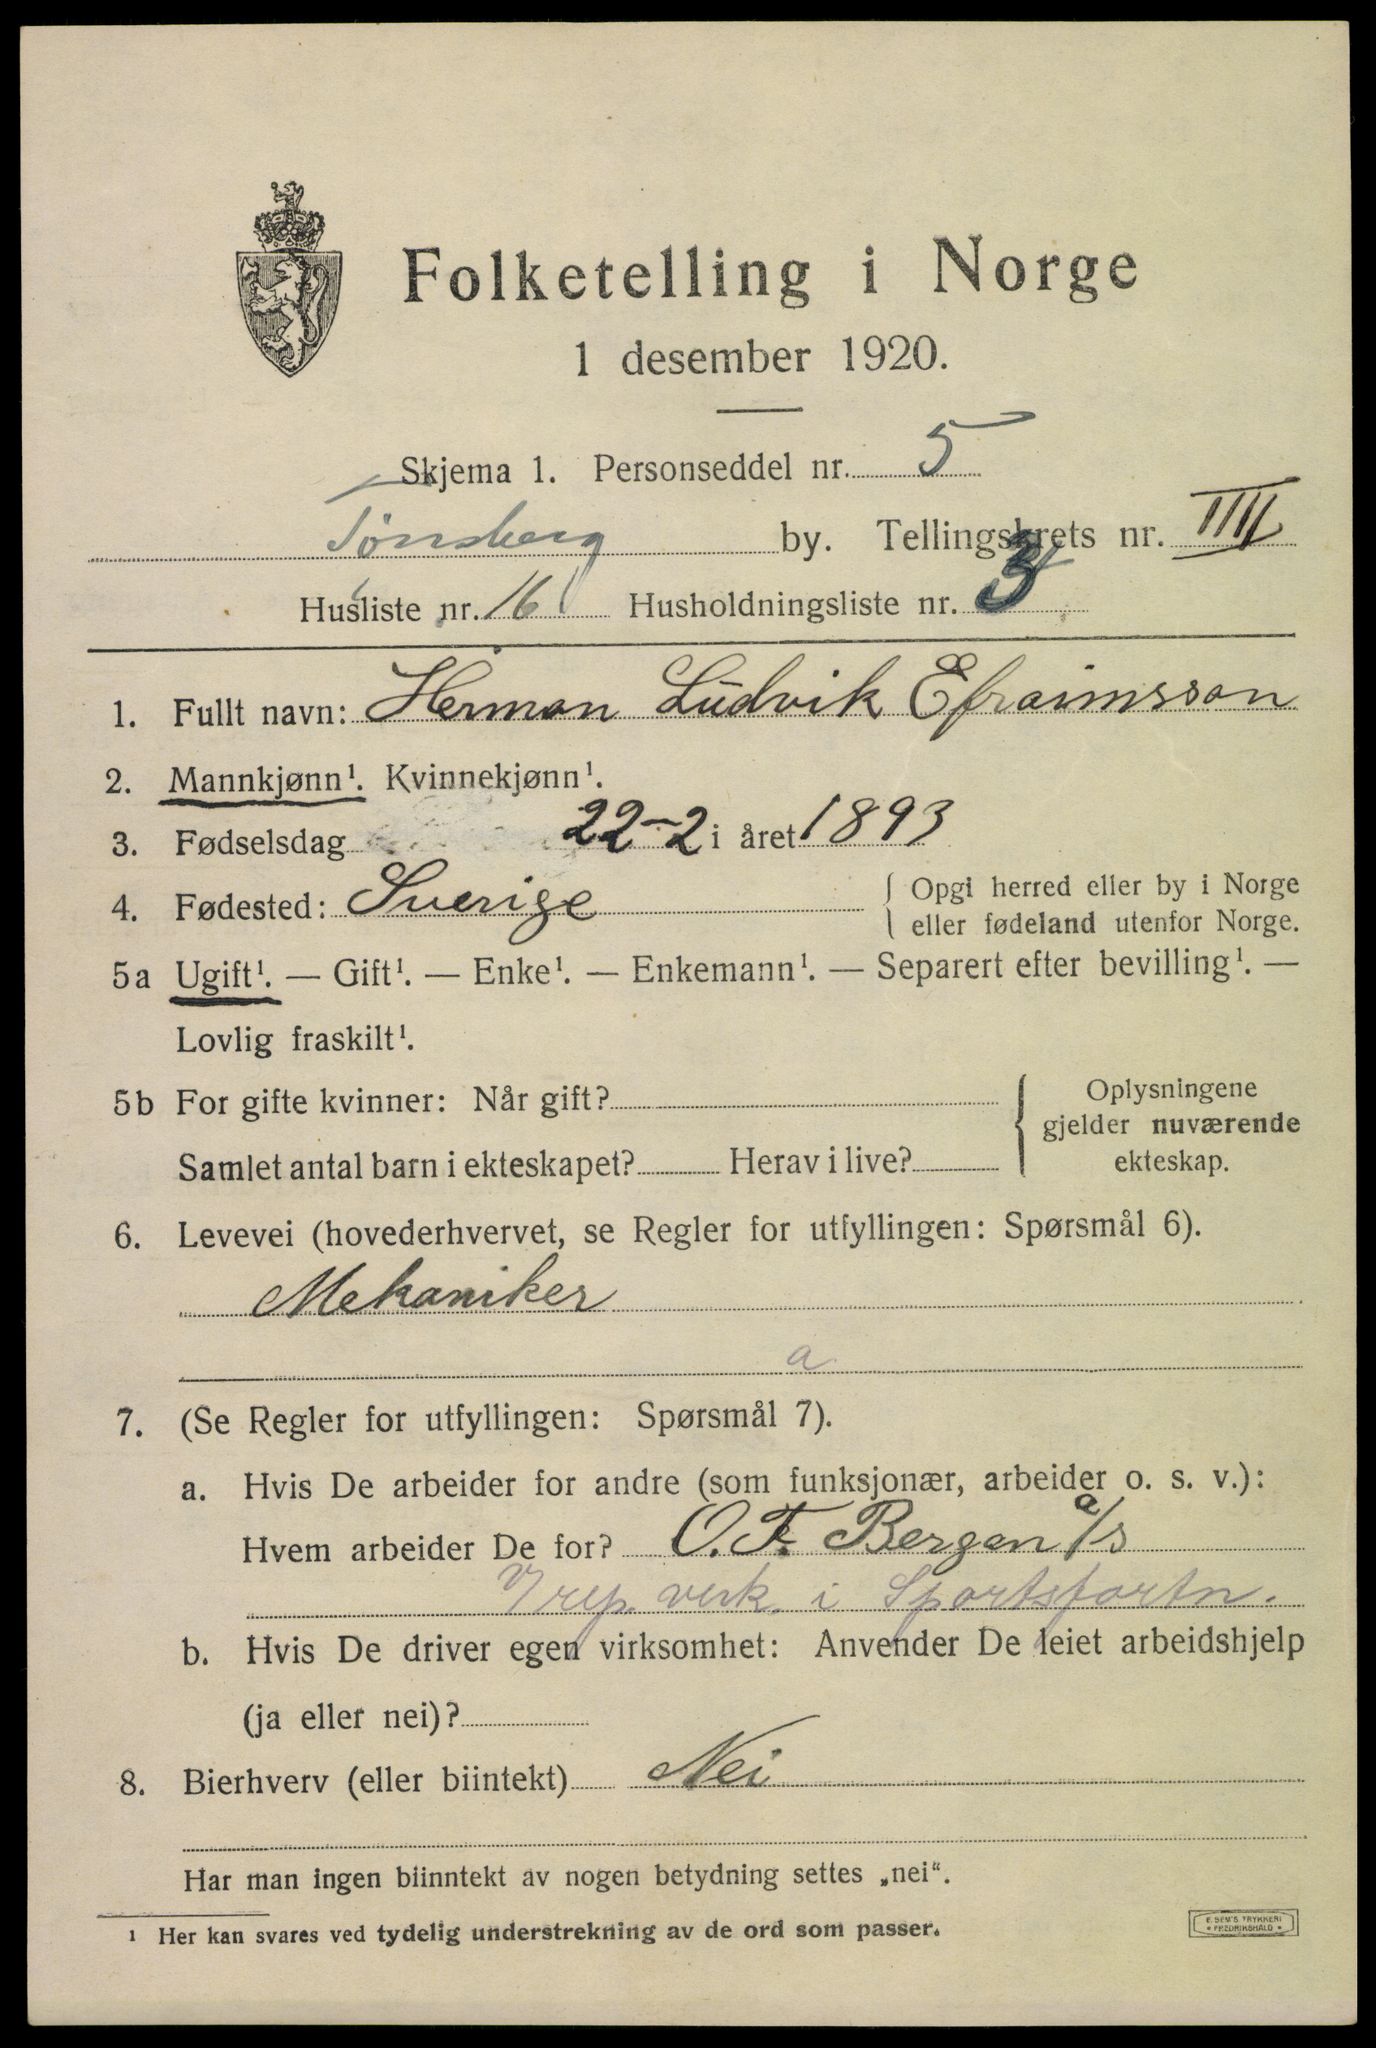 Folketelling i Norge
1 desember 1920.
Skjema 1. Personseddel nr. 5
Tønsberg by. Tellingskrets nr. IIII
Husliste nr. 16 Husholdningsliste nr. 3
1. Fullt navn: Herman Ludvik Efraimsson
2. Mannkjønn¹. Kvinnekjønn¹.
3. Fødselsdag 22-2 i året 1893
4. Fødested: Sverige { Opgi herred eller by i Norge
eller fødeland utenfor Norge.
5a Ugift¹. — Gift¹. — Enke¹. — Enkemann¹. — Separert efter bevilling¹. —
Lovlig fraskilt¹.
5b For gifte kvinner: Når gift? { Oplysningene
gjelder nuværende
Samlet antal barn i ekteskapet? Herav i live? ekteskap.
6. Levevei (hovederhvervet, se Regler for utfyllingen: Spørsmål 6).
Mekaniker
a
7. (Se Regler for utfyllingen: Spørsmål 7).
a. Hvis De arbeider for andre (som funksjonær, arbeider o. s. v.):
Hvem arbeider De for? O. F. Bergan a/s
rep. verk. i Sportsfortn.
b. Hvis De driver egen virksomhet: Anvender De leiet arbeidshjelp
(ja eller nei)?
8. Bierhverv (eller biintekt) Nei
Har man ingen biinntekt av nogen betydning settes „nei“.
¹ Her kan svares ved tydelig understrekning av de ord som passer.
E. SEM'S TRYKKERI
• FREDRIKSHALD •